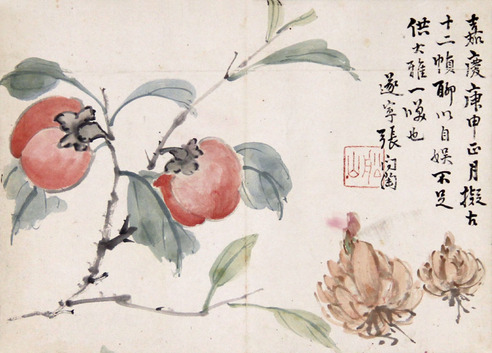 嘉慶庚申正月擬古
十二幀聊以自娱不足
供大雅一噱也
遂寧張問陶
船山